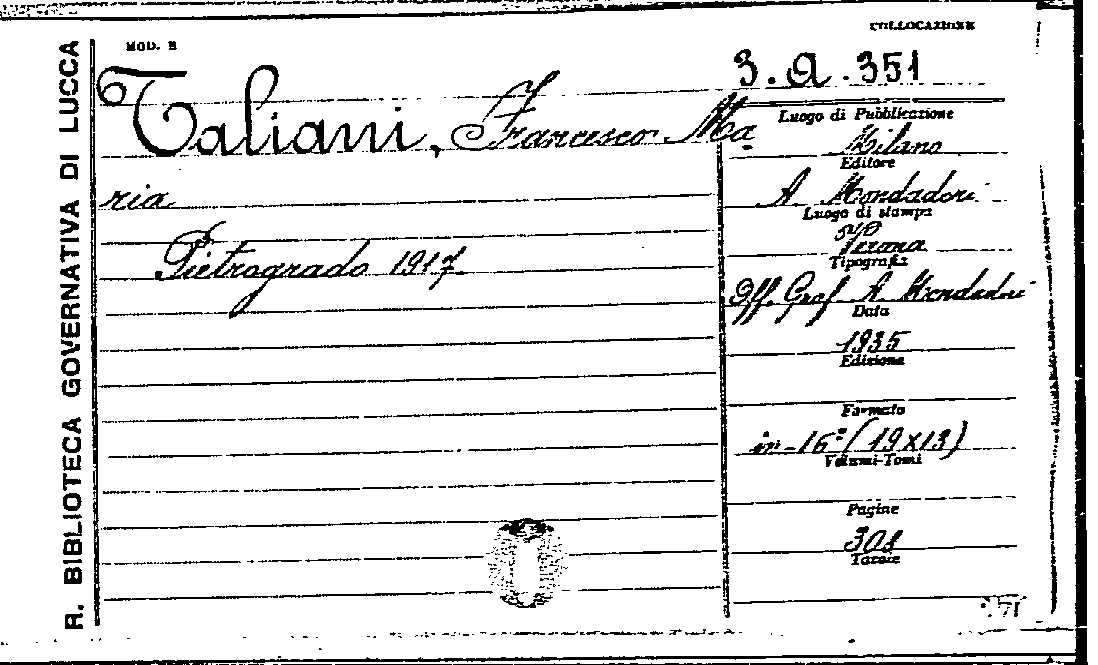 R. BIBLIOTECA GOVERNATIVA DI LUCCA
MOD. B
COLLOCAZIONE
3. A. 351
Taliani, Francesco Ma
ria
Pietrogrado 1917
Luogo di Pubblicazione
Milano
Editore
A. Mondadori
Luogo di stampa
Verona
Tipografia
Off. Graf. A. Mondadori
Data
1935
Edizione
Formato
in-16º (19x13)
Volumi-Tomi
Pagine
308
Tavole